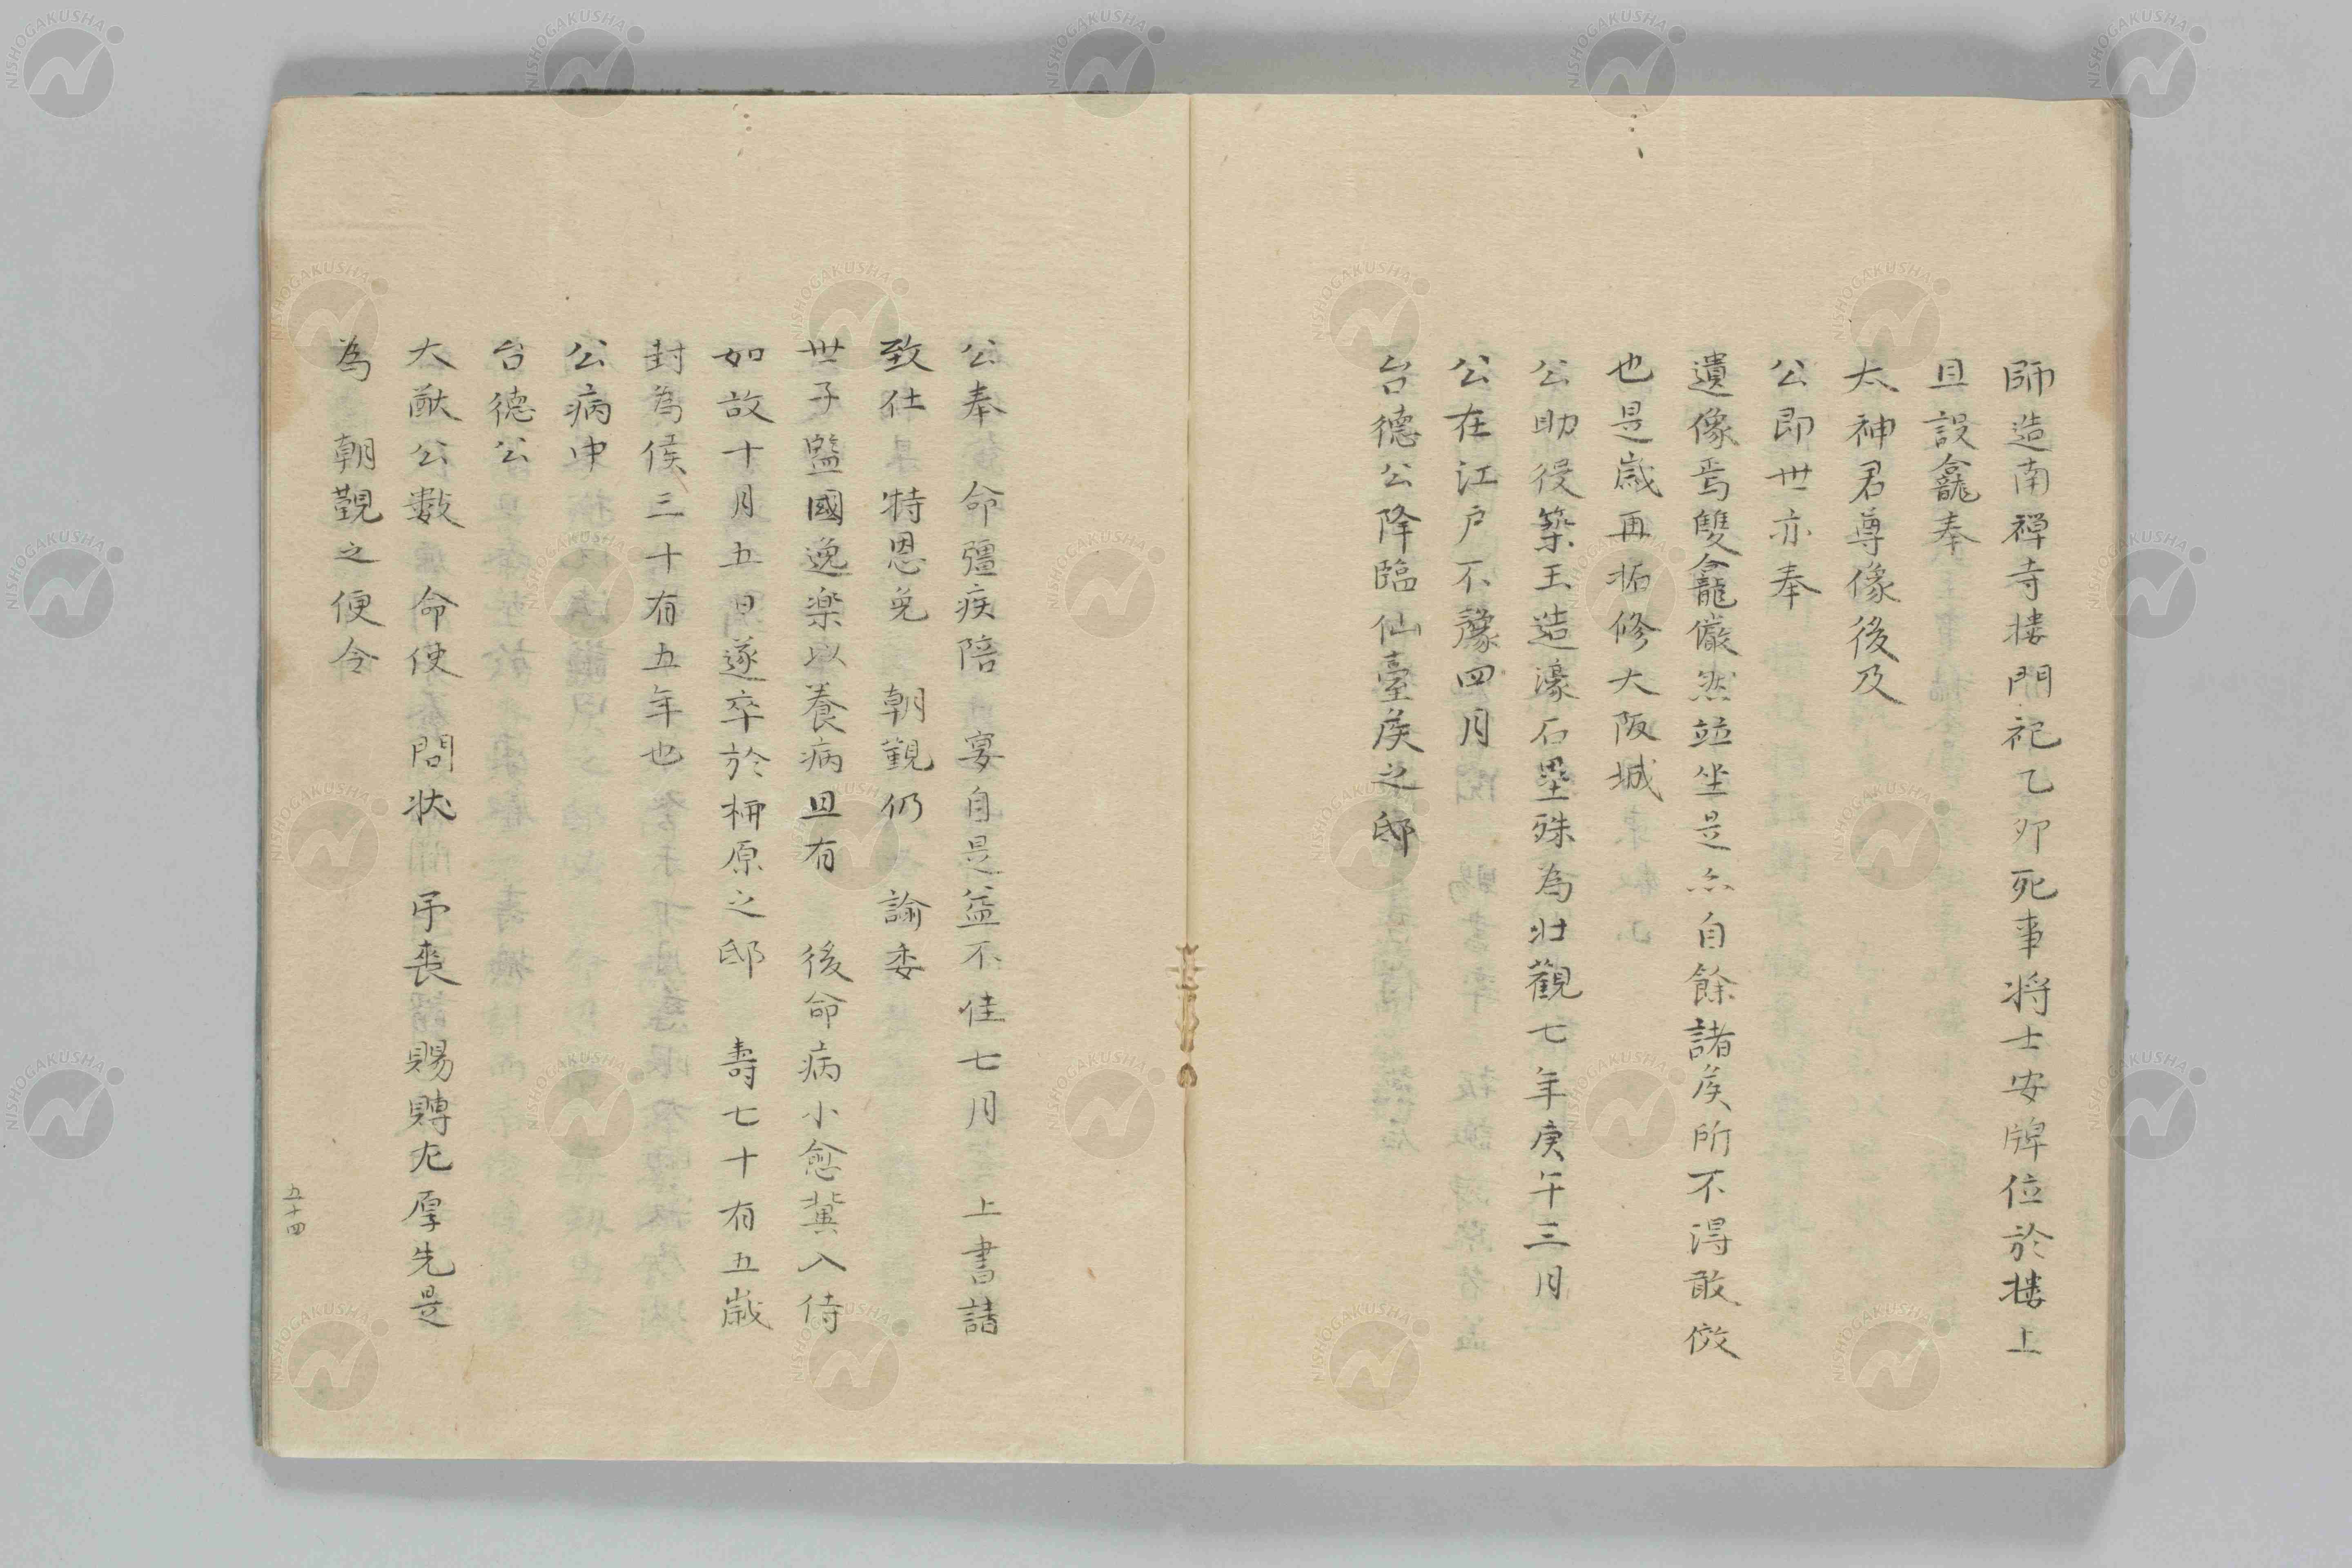 師造南禅寺楼門祀乙卯死事将士安牌位於楼上
且設龕奉
太神君尊像後及
公即世亦奉
遺像焉雙龕儼然竝坐是亦自餘諸侯所不得敢倣
也是歳再拓修大阪城
公助役築玉造濠石塁殊為壮觀七年庚午三月
公在江戸不豫四月
台德公降臨仙臺侯之邸
公奉 命彊疾陪 宴自是益不佳七月 上書請
致仕 特恩免 朝觀仍 諭委
世子監國逸楽以養病且有 後命病小愈冀入侍
如故十月五日遂卒於柳原之邸 壽七十有五歳
封為侯三十有五年也
公病中
台德公
大猷公數 命使 問状 弔喪 賜賻尤厚先是
為 朝覲之便令
五十四
NISHOGAKUSHA